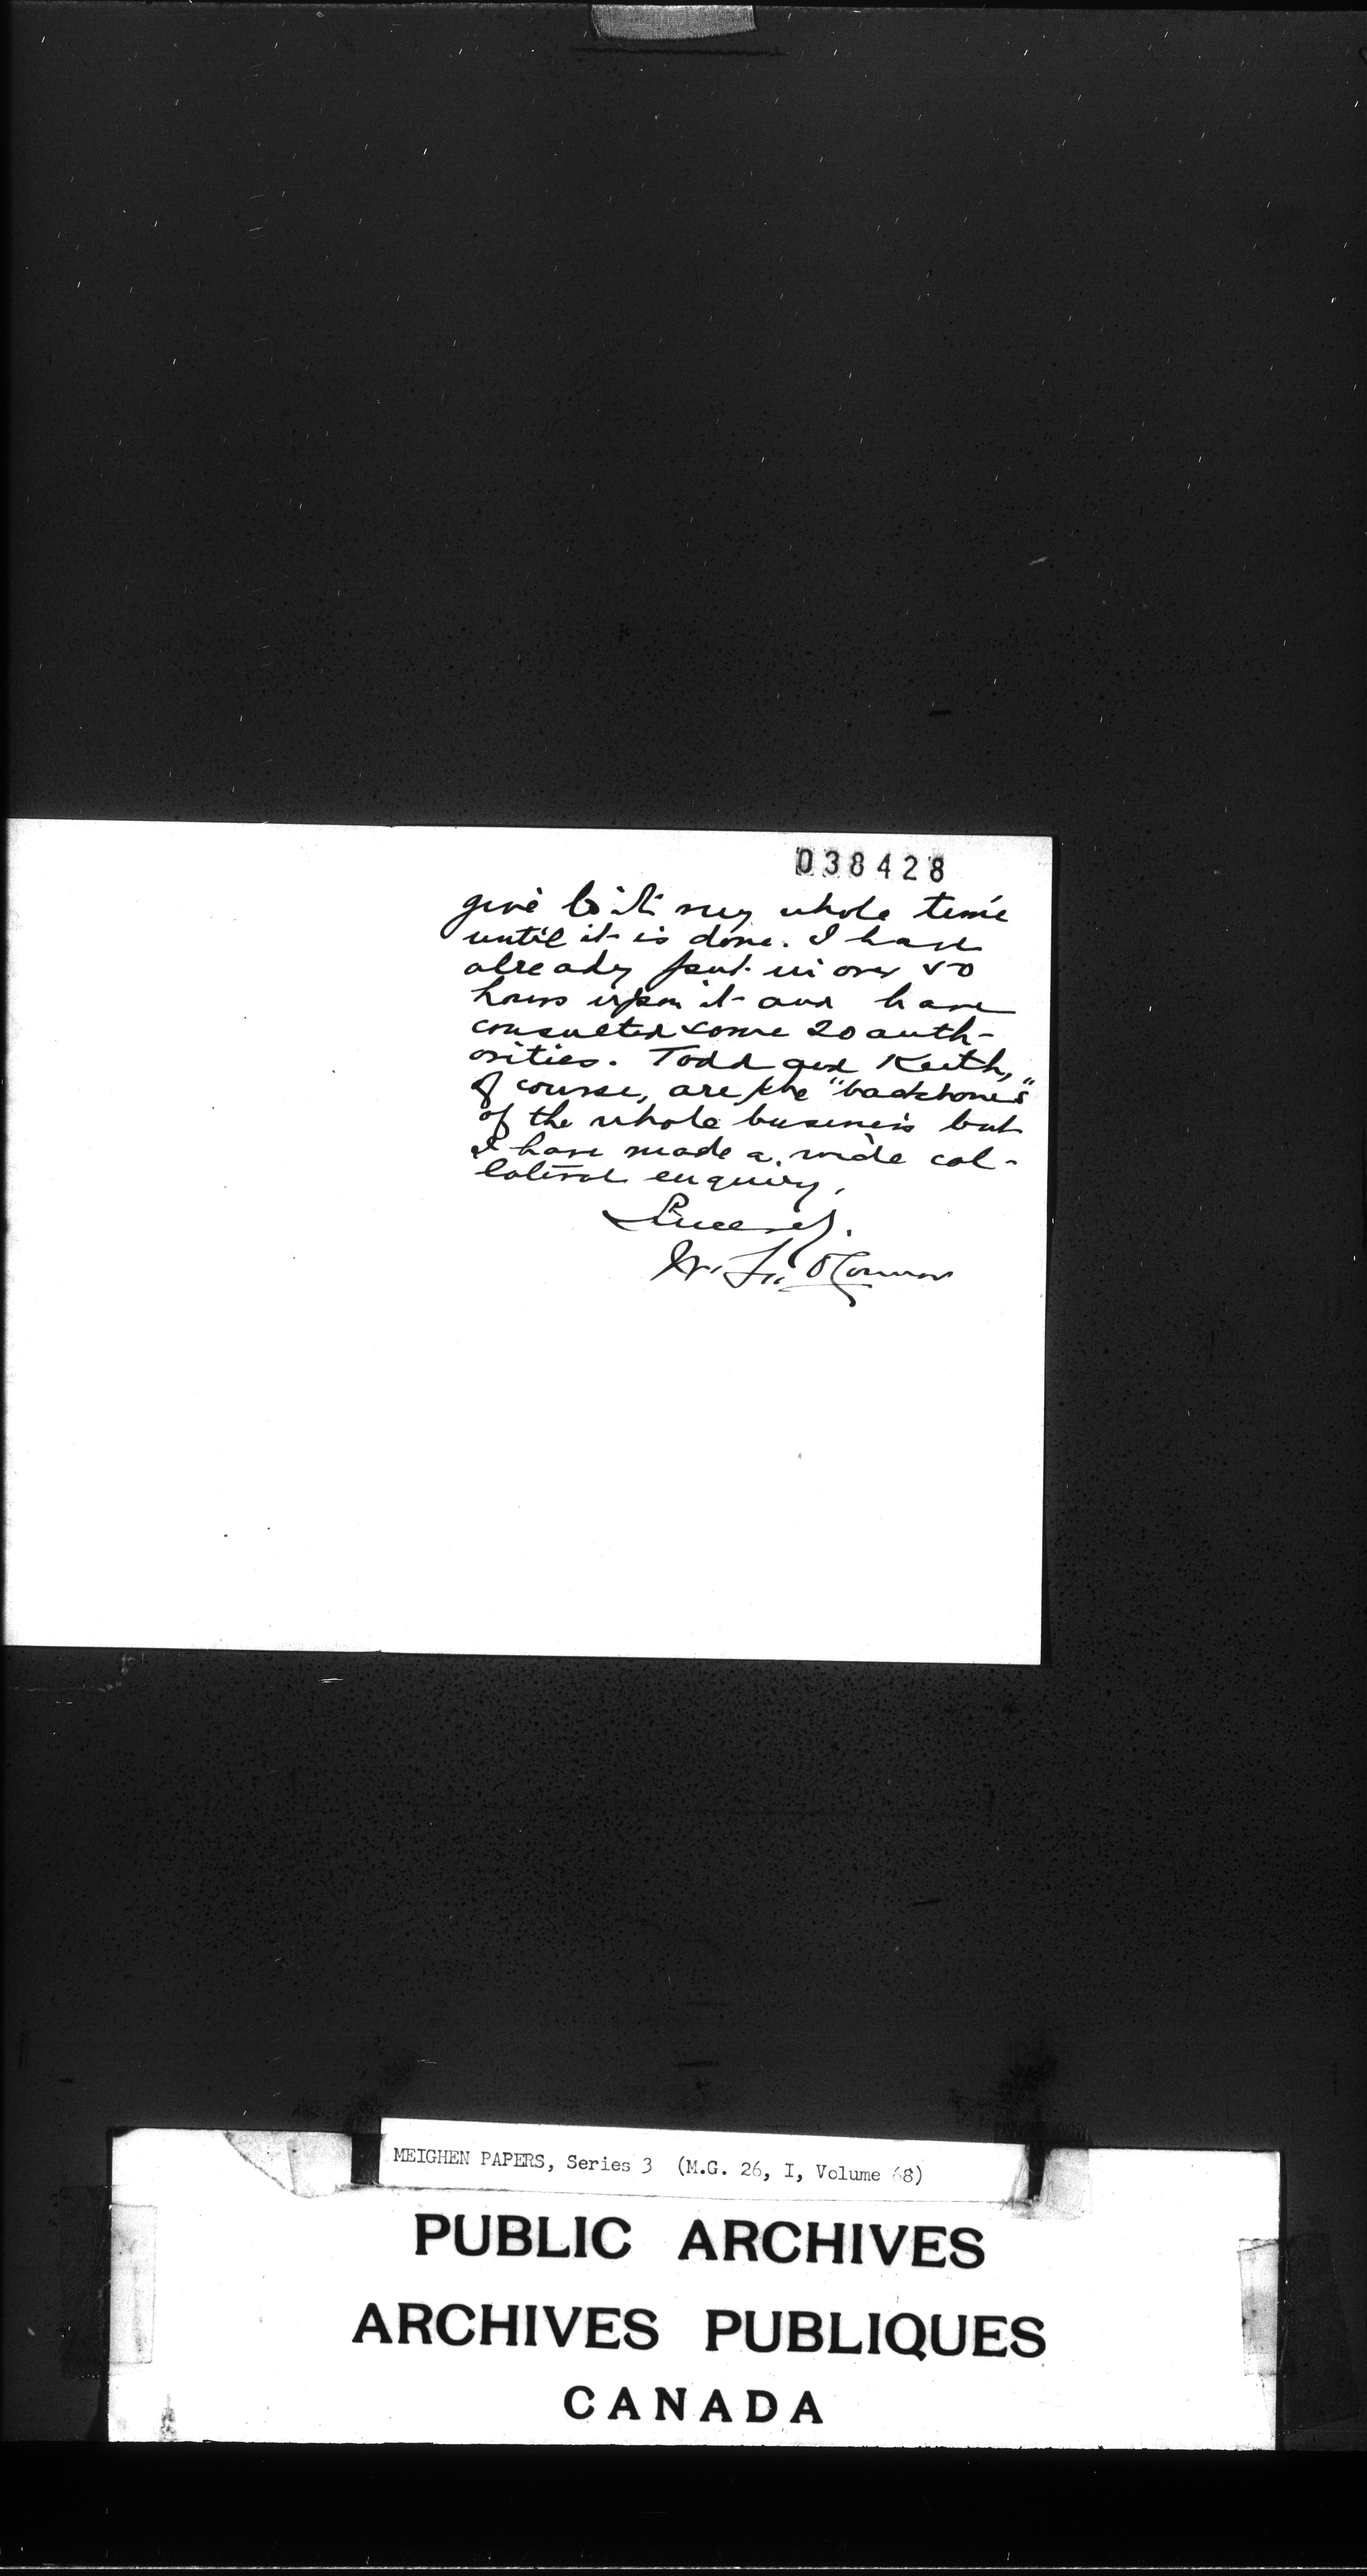 038428
give to it my whole time
until it is done. I have
already put in over 50
hours upon it and have
consulted some 20 auth-
orities. Todd and Keith,
of course, are the "backbones"
of the whole business but
I have made a wide col-
lateral enquiry.
Sincerely.
W. F. O'Connor
MEIGHEN PAPERS, Series 3 (M.G. 26, I, Volume 68)
PUBLIC ARCHIVES
ARCHIVES PUBLIQUES
CANADA